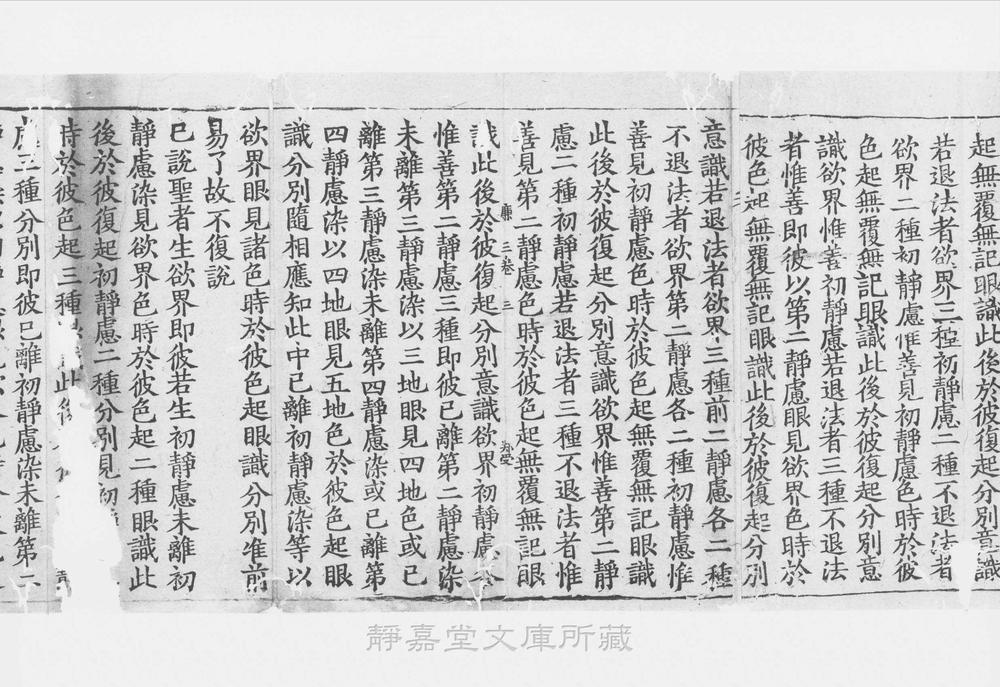 起無覆無記眼識此後於彼復起分別意識
若退法者欲界三種初靜慮二種不退法者
欲界二種初靜慮惟善見初靜慮色時於彼
色起無覆無記眼識此後於彼復起分別意
識欲界惟善初靜慮若退法者三種不退法
者惟善即彼以第二靜慮眼見欲界色時於
彼色起無覆無記眼識此後於彼復起分別
意識若退法者欲界三種前二靜慮各二種
不退法者欲界第二靜慮各二種初靜慮惟
善見初靜慮色時於彼色起無覆無記眼識
此後於彼復起分別意識欲界惟善第二靜
慮二種初靜慮若退法者三種不退法者惟
善見第二靜慮色時於彼色起無覆無記眼
三卷 三
識此後於彼復起分別意識欲界初靜慮
惟善第二靜慮三種即彼已離第二靜慮染
未離第三靜慮染以三地眼見四地色或已
離第三靜慮染未離第四靜慮染或已離第
四靜慮染以四地眼見五地色於彼色起眼
識分別隨相應知此中已離初靜慮染等以
欲界眼見諸色時於彼色起眼識分別准前
易了故不復說
已說聖者生欲界即彼若生初靜慮未離初
靜慮染見欲界色時於彼色起二種眼識此
後於彼復起初靜慮二種分別見初
時於彼色起三種 此後
慮三種分別即彼已離初靜慮染未離第二
靜嘉堂文庫所藏